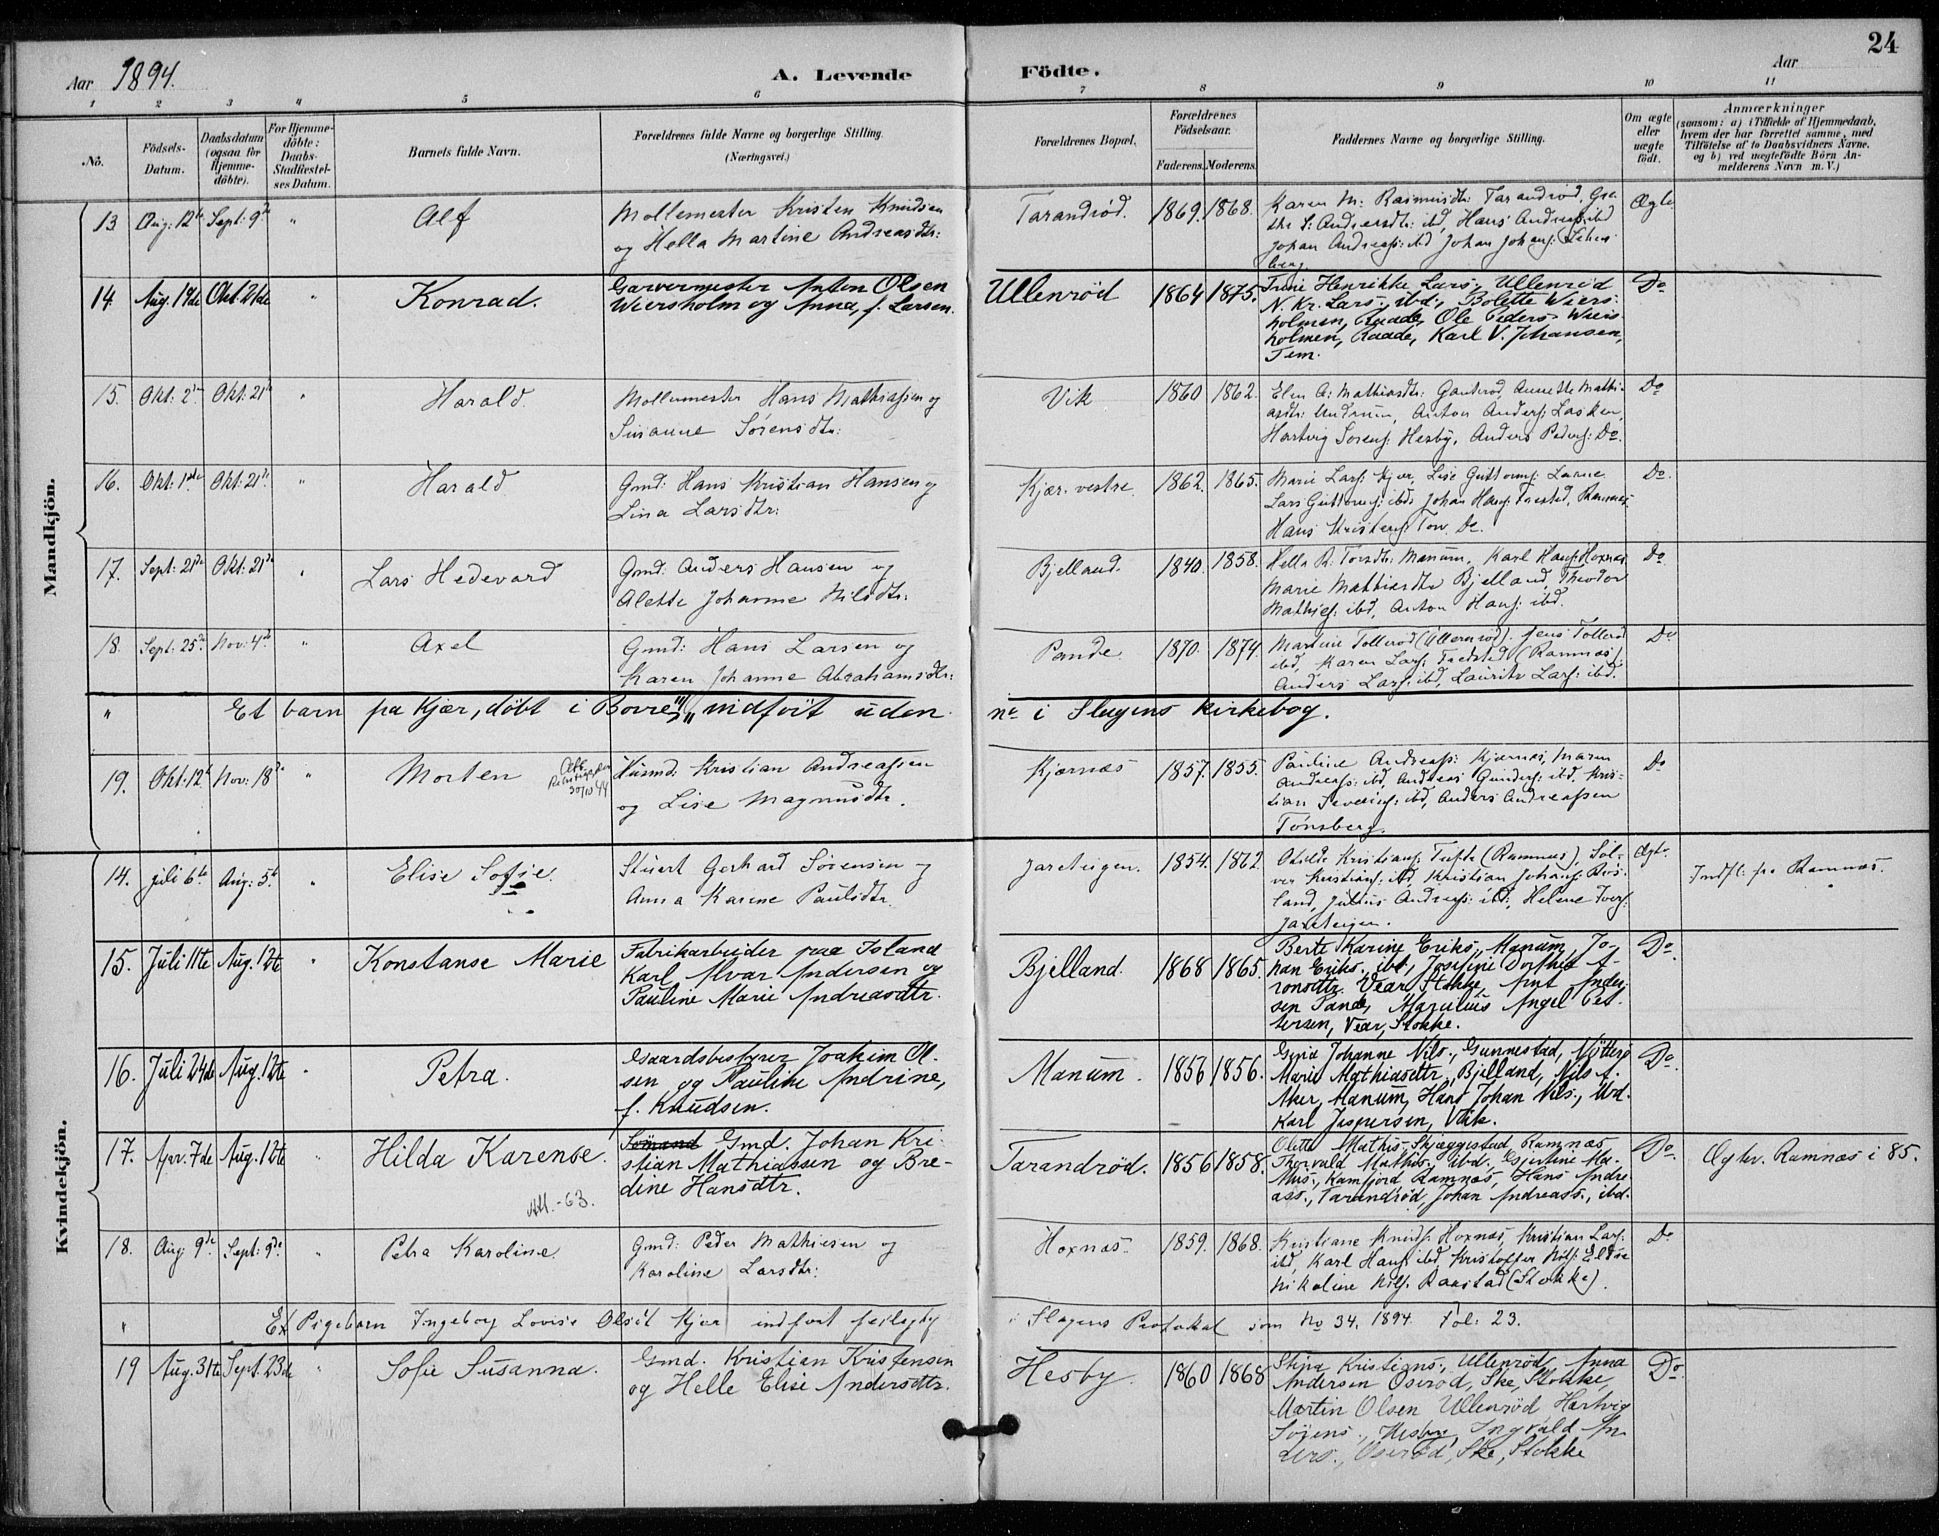 24
Aar 1894.
A. Levende Födte.
Aar
1 2 3 4 5 6 7 8 9 10 11
No.
Födsels-Datum.
Daabsdatum (ogsaa for Hjemme-döbte).
For Hjemme-döbte: Daabs-Stadfæstel-ses Datum.
Barnets fulde Navn.
Forældrenes fulde Navne og borgerlige Stilling.
(Næringsvei.)
Forældrenes Bopæl.
Forældrenes Födselsaar.
Faderens. Moderens.
Faddernes Navne og borgerlige Stilling.
Om ægte eller uægte födt.
Anmærkninger
(saasom: a) i Tilfælde af Hjemmedaab,
hvem der har forrettet samme, med
Tilföielse af to Daabsvidners Navne,
og b) ved uægtefödte Börn An-
melderens Navn m. V.)
Mandkjön.
13 Aug: 12te Sept: 9de " Alf
Mollemester Kristen Knudsen
og Hella Martine Andreasdtr:
Tarandrød. 1869. 1868.
Karen M: Rasmusdtr: Tarandrød, Gre-
the S: Andersdtr: ibd, Hans Andreass: ibd
Johan Andreass: ibd Johan Johans:
berg.
Ægte
14 Aug. 19de Okt. 21de " Konrad.
Garvermester Anton Olsen
Weiersholm og Anna, f. Larsen.
Ullenrød 1864 1875.
Trine Henrikke Lars., Ullenrød
N. Kr. Lars., ibd., Bolette Wiers-
holmen, Raade, Ole Peders Wiers-
holmen, Raade, Karl V. Johansen,
Tem.
Do
15. Okt. 2den Okt: 21de " Harald.
Mollemester Hans Mathiassen og
Susanne Sørensdtr:
Vik 1860 1862.
Elen A: Mathiasdtr: Ganterød, Annette Mathi-
asdtr: Undrum, Anton Anders: Lasken,
Hartvig Sørens: Hesby, Anders Peders: Do.
Do
16. Okt: 1ste Okt: 21de " Harald
Gmd: Hans Kristian Hansen og
Lina Larsdtr:
Kjær vestre. 1862. 1865.
Marie Lars: Kjær, Lise Guttorms:
Lars Guttorms: ibd. Johan Hans: Ramnes
Hans Kristens: Do.
Do
17. Sept: 21de Okt: 21de " Lars Hedevard
Gmd: Anders Hansen og
Alette Johanne Nilsdtr:
Bjelland. 1840. 1858.
Hella R. Torsdtr: Manum, Karl Hans: Hoxnæs
Marie Mathiasdtr Bjelland, Theodor
Mathis: ibd, Anton Hans: ibd.
Do
18. Sept: 25de Nov: 4de " Axel
Gmd: Hans Larsen og
Karen Johanne Abrahamsdtr:
Pande. 1870. 1874.
Martine Tollerød (Ullenrød). Jens Tollerød
ibd, Karen Lars: (Ramnæs).
Anders Lars: ibd, Laurits Lars: ibd.
Do
" Et barn pa Kjær, døbt i Borre, indført uden no i Slagens Kirkebog.
19. Okt: 12te Nov: 18de " Morten
Att.
30/10 44
Husmd: Kristian Andreassen
og Lise Magnusdtr.
Kjærnæs 1857. 1855.
Pauline Andreass: Kjærnæs, Maren
Andreass: ibd, Andreas Gunders: ibd, Kris-
tian Severins: ibd, Anders Andreassen
Tønsberg.
Do
Kvindekjön.
14. Juli 6te Aug: 5te " Elise Sofie.
Stuert Gerhard Sørensen og
Anna Karine Paulsdtr.
Jareteigen. 1854. 1862.
Otilde Kristians: Tufte (Ramnæs), Sol-
vei Kristians: ibd, Kristian Johans:
land, Julius Andreass: ibd, Helene Ivers:
Jareteigen.
Ægte.
Indfl. fra Ramnæs.
15. Juli 11te Aug. 12te " Konstanse Marie
Fabrikarbeider paa Island
Karl Alvar Andersen og
Pauline Marie Andreasdtr.
Bjelland. 1868 1865.
Berte Karine Eriks., Manum, Jo-
han Eriks., ibd., Josefine Dorthea A-
ronsdtr. Vear Stokke, Arnt Ander-
sen Pande, Marulius Angel Pet-
tersen, Vear, Stokke.
Do
16. Juli 24de Aug. 12te " Petra.
Gaardsbestyrer Joakim Ol-
sen og Pauline Andrine,
f. Knudsen.
Manum. 1856 1856.
Gina Johanne Nils., Gunnestad, Nøtterø
Marie Mathiasdtr, Bjelland, Nils A.
Aker, Manum, Hans Johan Nils., ibd.
Karl Jaspersen, Vik.
Do
17. Apr. 7de Aug. 12te " Hilda Karense.
Att. -63.
Sömand Gmd. Johan Kri-
stian Mathiassen og Bre-
dine Hansdtr.
Tarandrød. 1856 1858.
Olette Mathis. Skjæggestad, Ramnæs
Thorvald Mathis. ibd. Gjertine Ma-
this., Kamfjord Ramnæs, Hans Andre-
ass., Tarandrød, Johan Andreass., ibd.
Do
Ægtev. Ramnæs i 85.
18. Aug: 9de Sept: 9de " Petra Karoline.
Gmd: Peder Mathisen og
Karoline Larsdtr:
Hoxnæs 1859. 1868.
Kristiane Knuds: Hoxnæs, Kristian Lars:
ibd, Karl Hans: ibd, Kristoffer Nils:
Nikoline Nils: Raastad (Stokke).
Do
" Et Pigebarn Ingeborg Lovise Olsdt Kjær indført feilagtig i Slagens Protokol som No 34. 1894. Fol: 23.
19 Aug. 31te Sept. 23de " Sofie Susanna.
Gmd. Kristian Kristensen
og Helle Elise Andersdtr.
Hesby. 1860 1868
Stina Kristians., Ullenrød, Anna
Andersen Oserød, Ske, Stokke,
Martin Olsen Ullenrød Hartvig
Sørens., Hesby, Ingvald An-
ders., Oserød, Ske, Stokke
Do